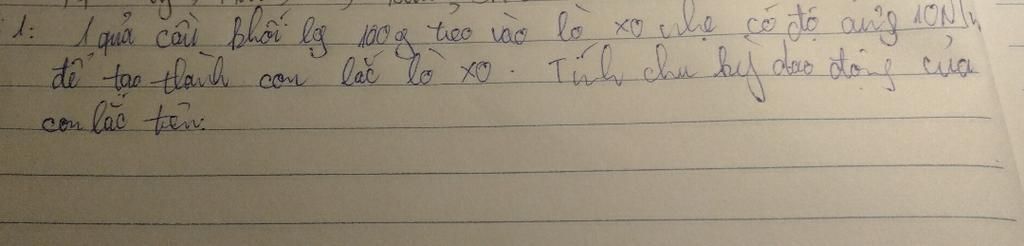 1: 1 quả cầu khối lg 100g treo vào lò xo nhẹ có độ cứng 10N/
để tạo thành con lắc lò xo. Tính chu kỳ dao động của
con lắc trên.